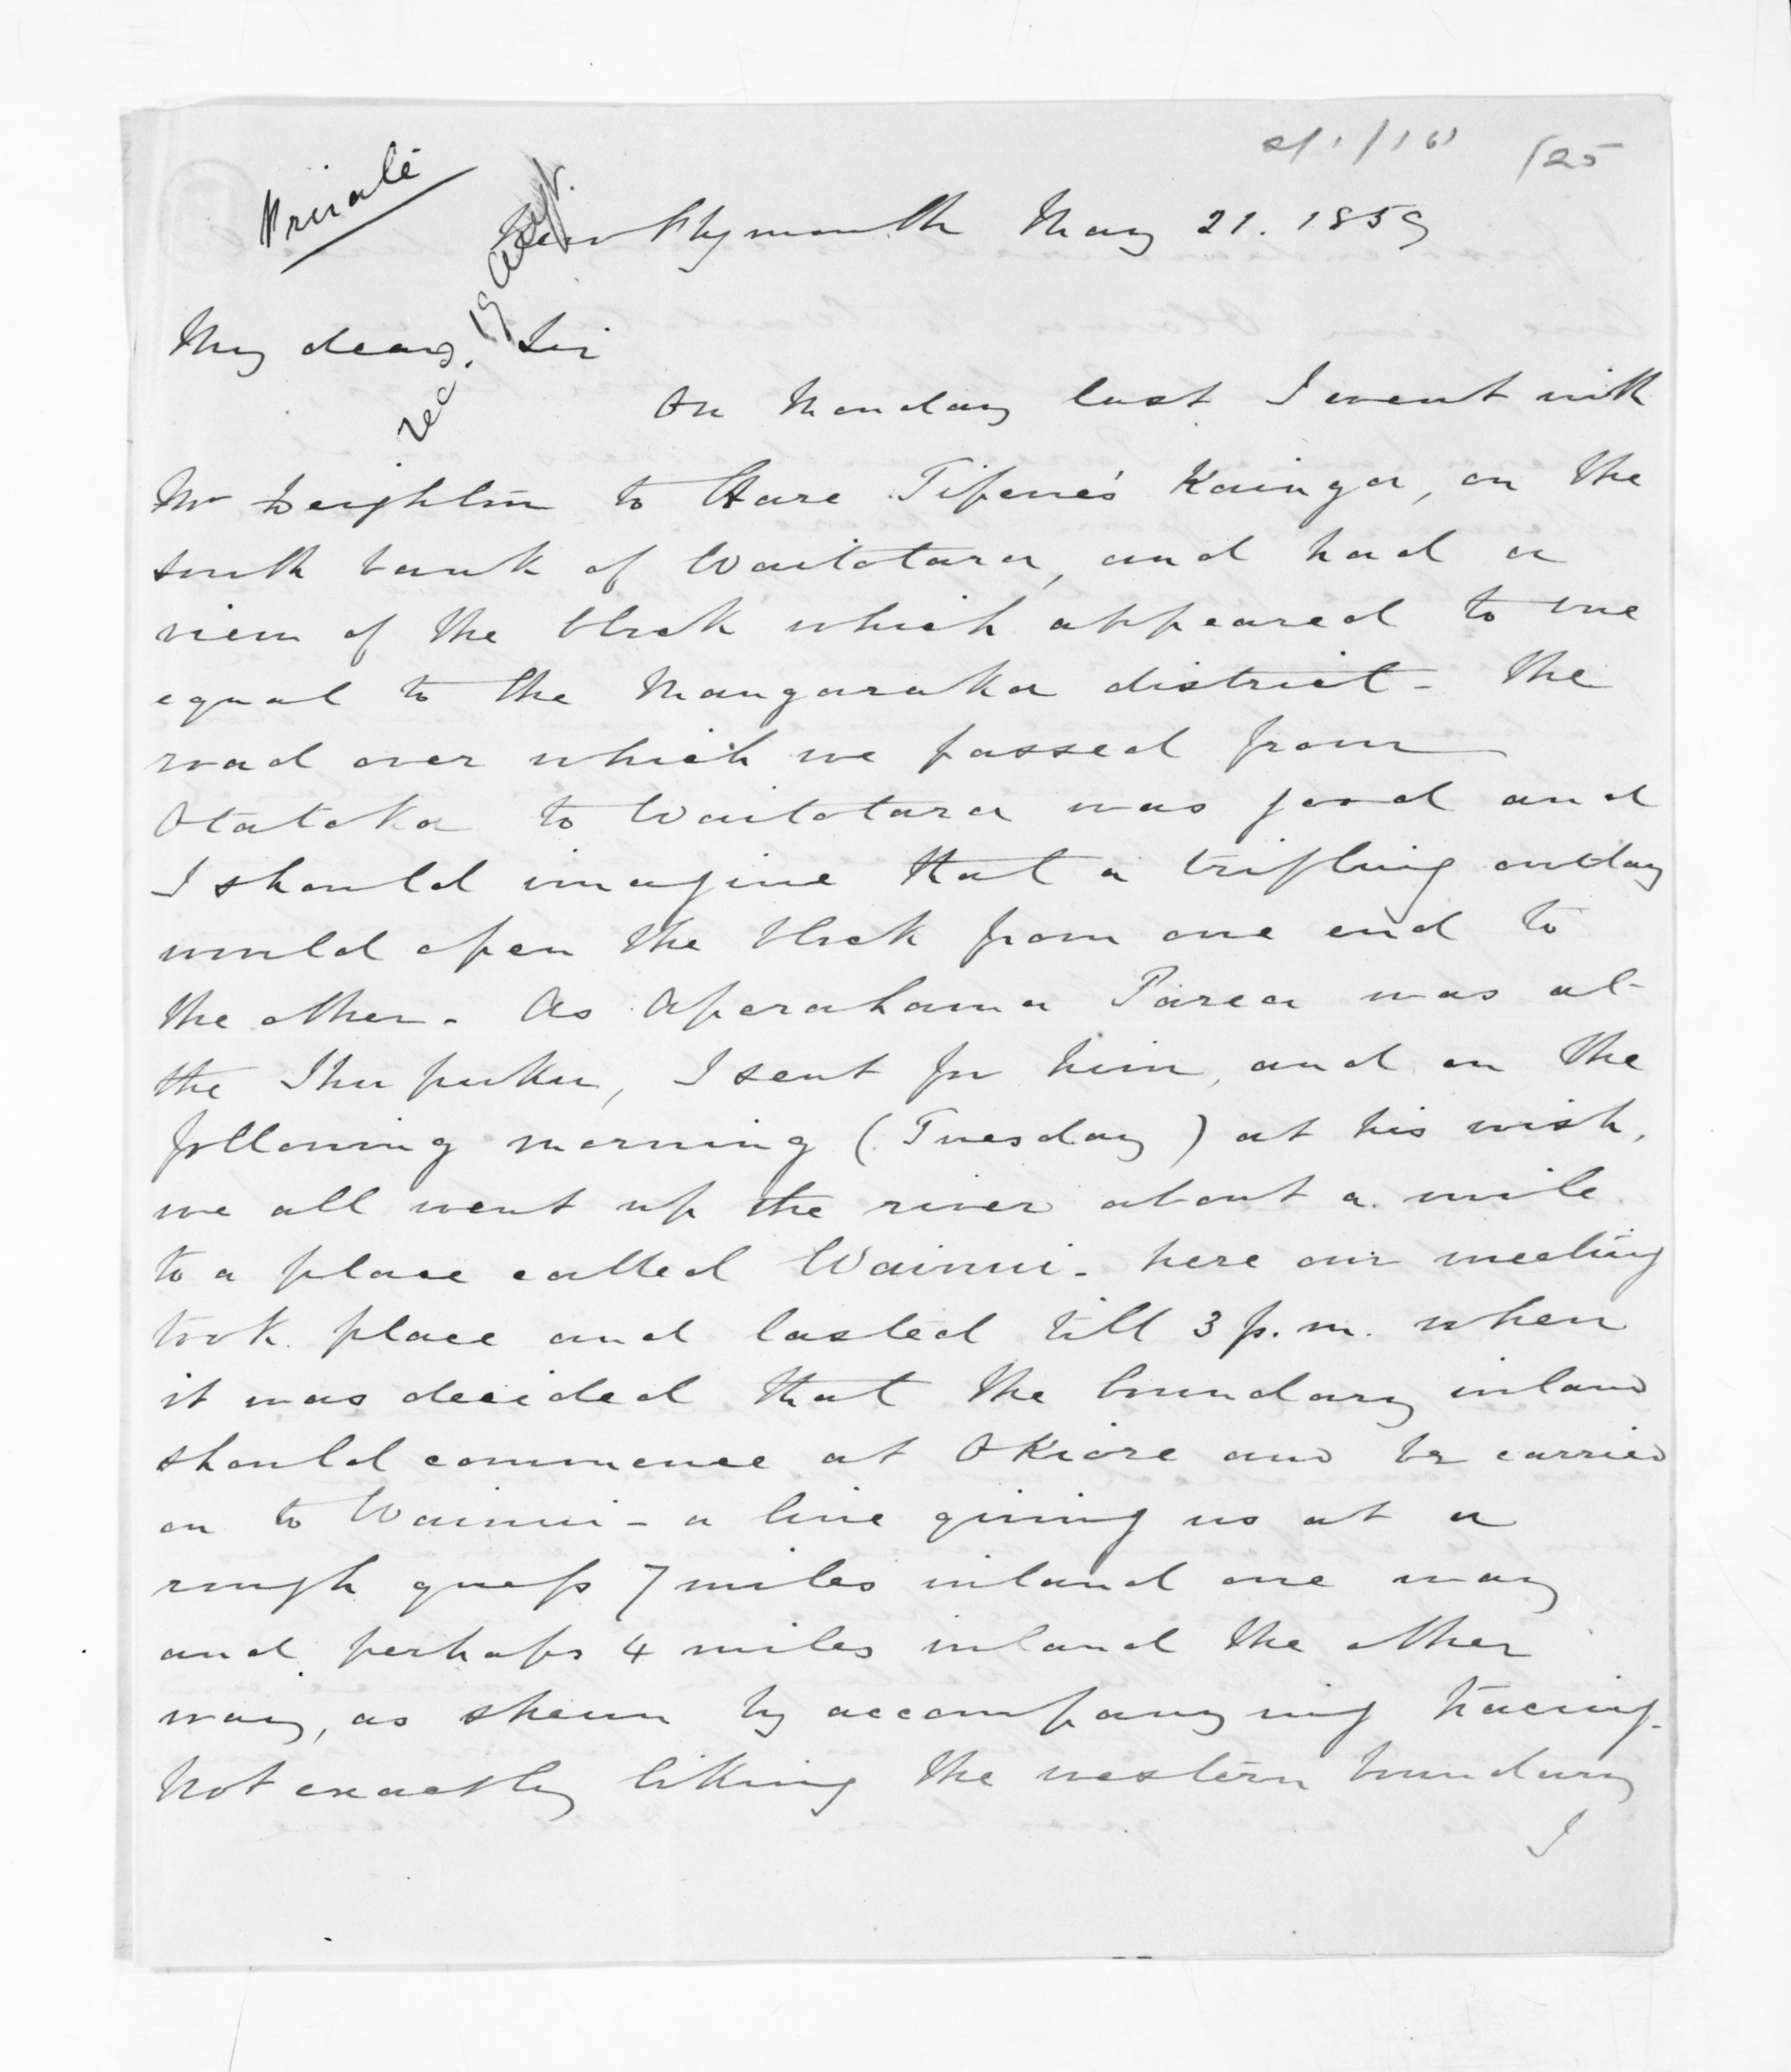 Private
125
New Plymouth May 21. 1859
My dear Sir
On Monday last I went with
Mr Deighton to Hare Tipene's Kainga, on the
south bank of Waitotara, and had a
view of the block which appeared to me
equal to the Mangaraka district - The
road over which we passed from
Otatoka to Waitotara was good and
I should imagine that a trifling outlay
would open the block from one end to
the other - As Aperahama Parea was at
the Ihupuku, I sent for him, and on the
following morning (Tuesday) at his wish,
we all went up the river about a mile
to a place called Wainui - here our meeting
took place and lasted till 3 p.m. when
it was decided that the boundary inland
should commence at Okiore and be carried
on to Wainui - a line giving us at a
rough guess 7 miles inland one way
and perhaps 4 miles inland the other
way, as shewn by accompanying tracing -
Not exactly liking the western boundary
I